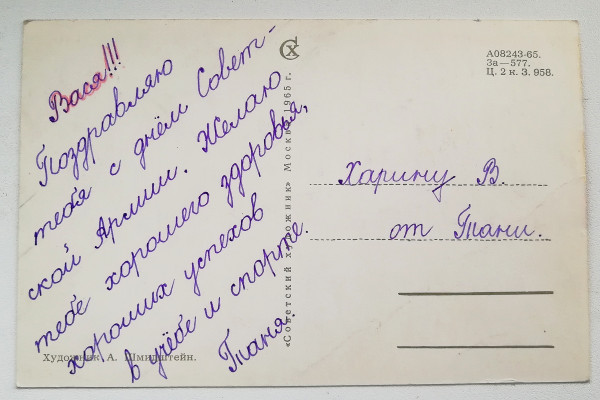 Вася!!!
Поздравляю
тебя с днём Совет-
ской Армии. Желаю
тебе хорошего здоровья,
хороших успехов
в учёбе и спорте.
Таня.
Художник А. Шмидштейн.
«Советский художник» Москва 1965 г.
СХ
А08243-65.
За—577.
Ц. 2 к. З. 958.
Харину В.
от Тани.